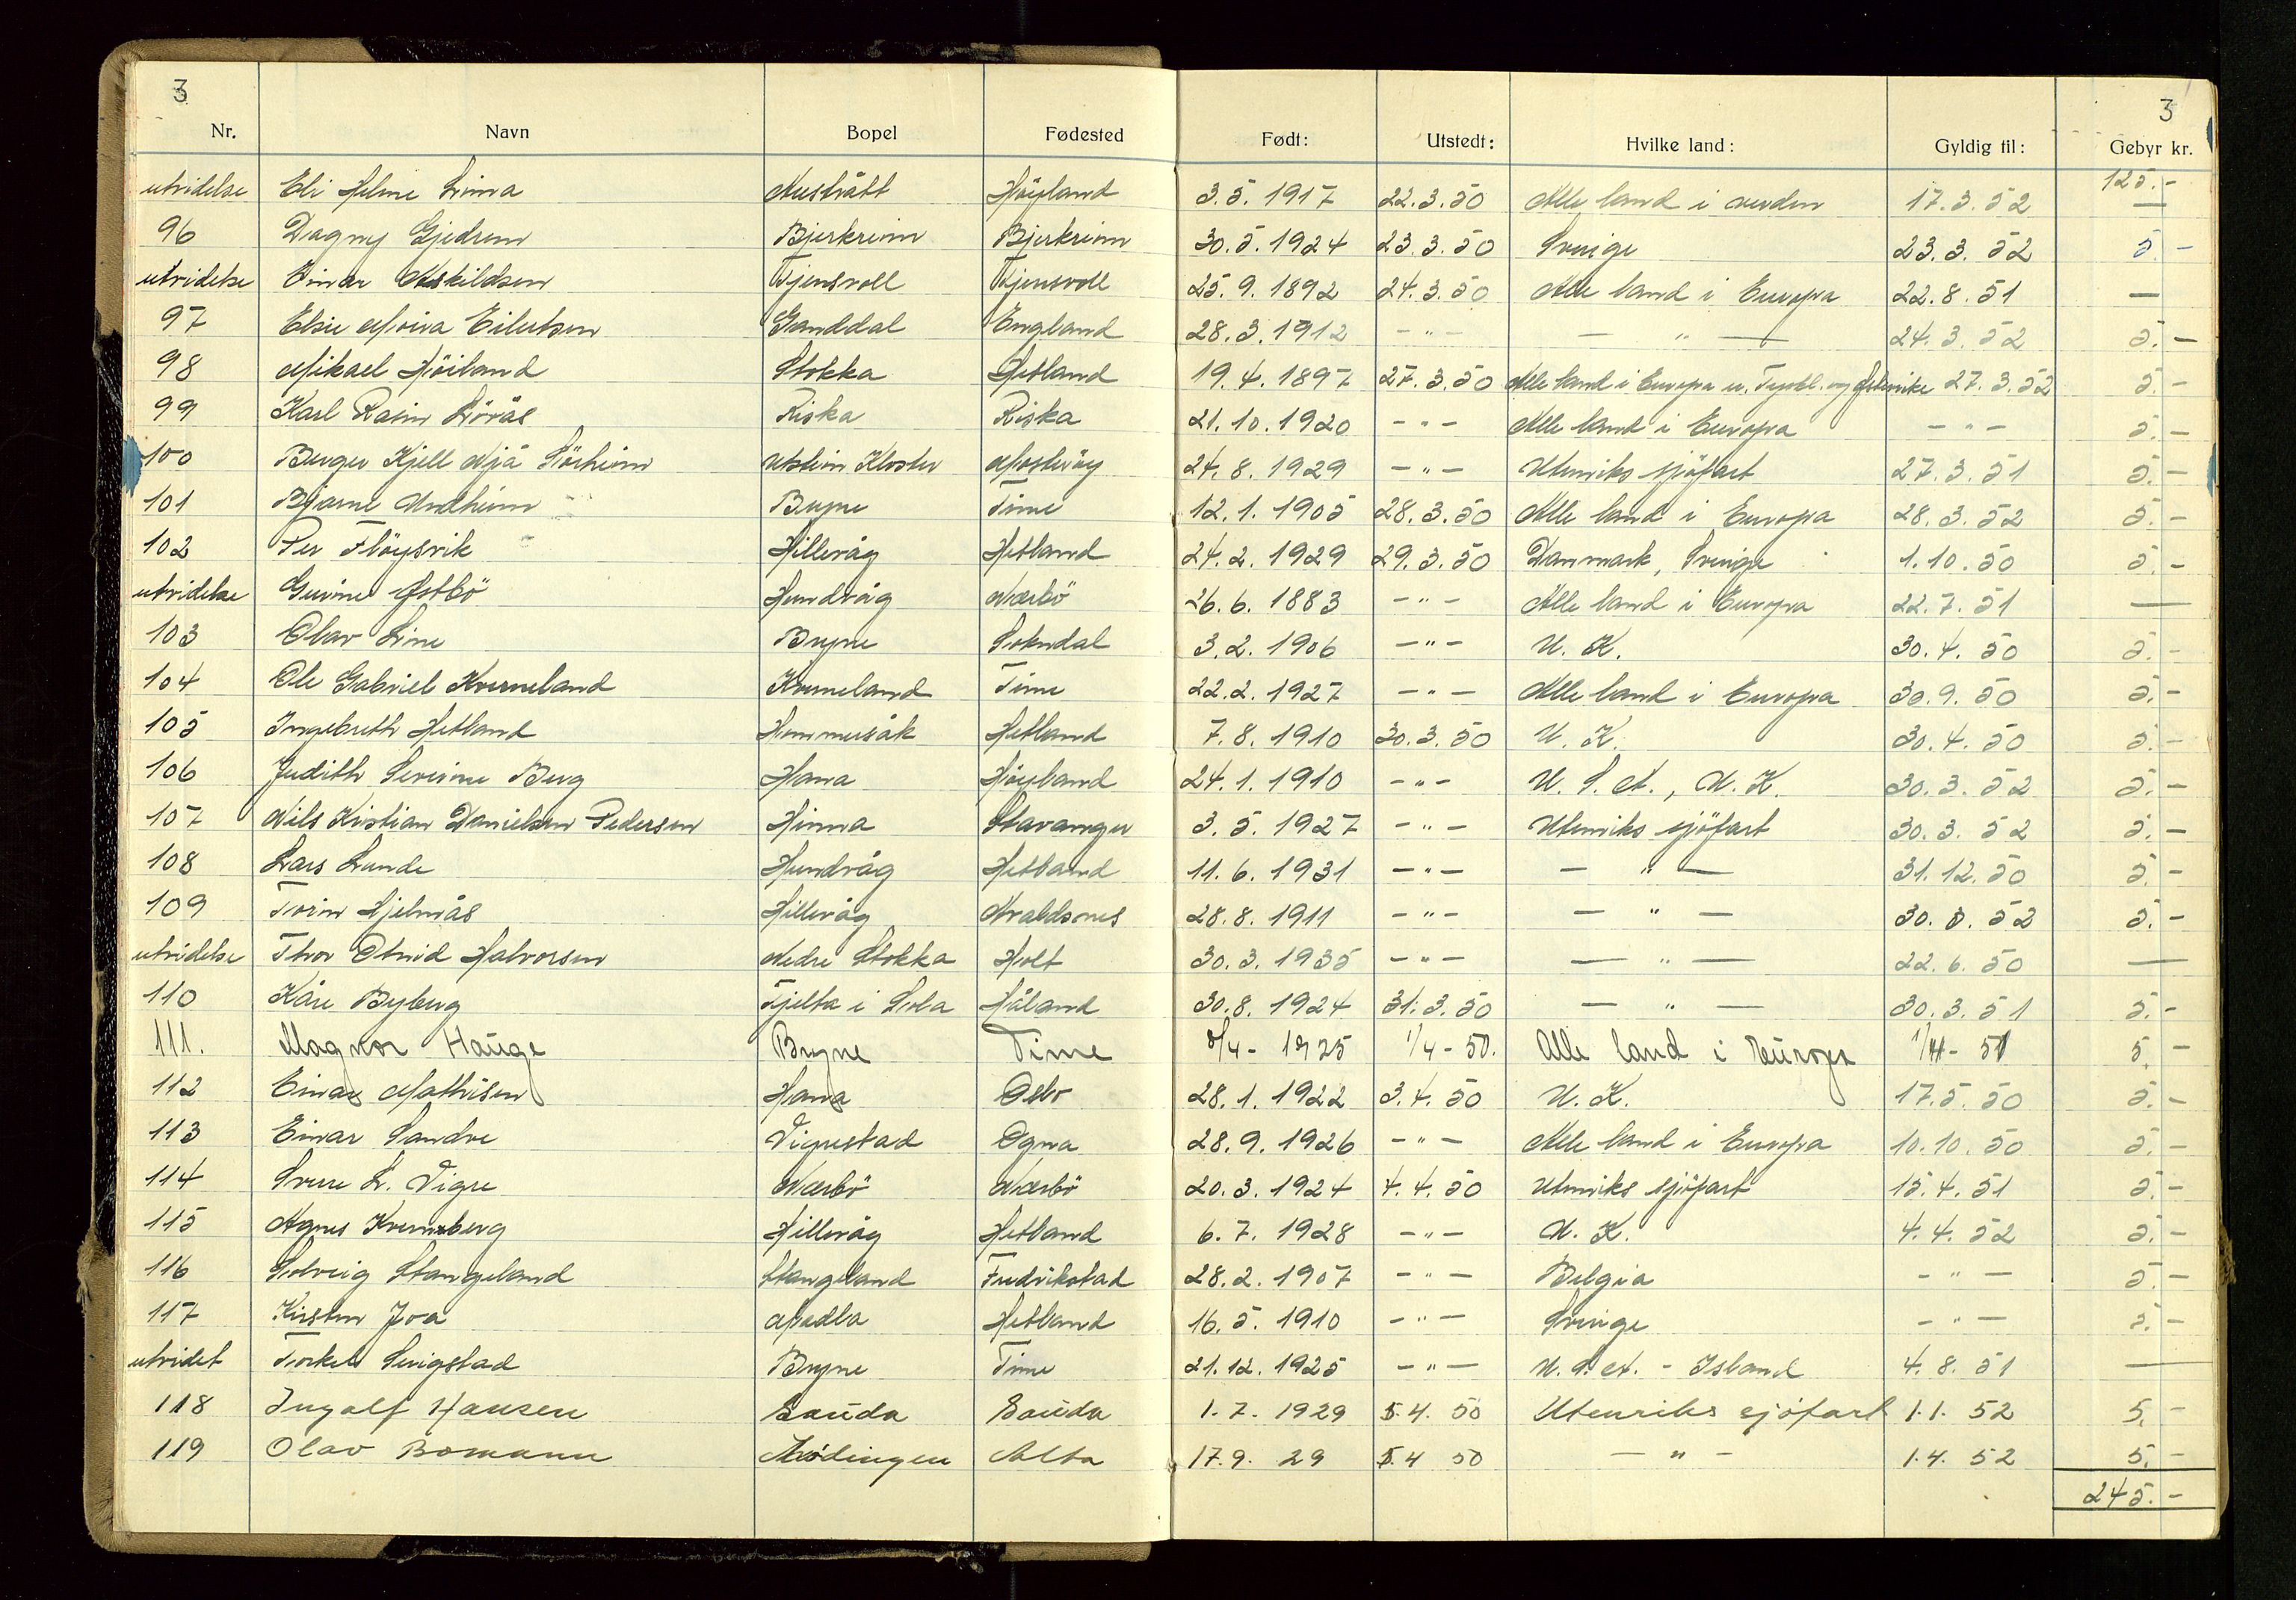 3 3
Nr. Navn Bopel Fødested Født: Utstedt: Hvilke land: Gyldig til: Gebyr kr.
125.-
utvidelse Eli Helene Lima Austrått Høyland 3.5.1917 22.3.50 Alle land i verden 17.3.52 —
96 Dagny Gjedrem Bjerkreim Bjerkreim 30.5.1924 23.3.50 Sverige 23.3.52 5.-
utvidelse Einar Askildsen Tjensvoll Tjensvoll 25.9.1892 24.3.50 Alle land i Europa 22.8.51 —
97 Elsie Moiva Eilertsen Ganddal England 28.3.1912 - " - — " — 24.3.52 5.-
98 Mikael Höiland Stokka Hetland 19.4.1897 27.3.50 Alle land i Europa u. Tyskl. og Østerrike 27.3.52 5.-
99 Karl Rasin Lörås Riska Riska 21.10.1920 - " - Alle land i Europa - " - 5.-
100 Berger Kjell Njå Sörheim Utstein Kloster Mosteröy 24.8.1929 - " - Utenriks sjöfart 27.3.51 5.-
101 Bjarne Undheim Bryne Time 12.1.1905 28.3.50 Alle land i Europa 28.3.52 5.-
102 Per Flöysvik Hillevåg Hetland 24.2.1929 29.3.50 Danmark, Sverige 1.10.50 5.-
utvidelse Gurine Østbö Hundvåg Nærbö 26.6.1883 - " - Alle land i Europa 22.7.51 —
103 Olav Line Bryne Sokndal 3.2.1906 - " - U. K. 30.4.50 5.-
104 Ole Gabriel Kverneland Kverneland Time 22.2.1927 - " - Alle land i Europa 30.9.50 5.-
105 Ingebreth Hetland Hommersåk Hetland 7.8.1910 30.3.50 U. K. 30.4.50 5.-
106 Judith Severine Berg Hana Höyland 24.1.1910 - " - U. S. A., U. K. 30.3.52 5.-
107 Nils Kristian Danielsen Pedersen Hinna Stavanger 3.5.1927 - " - Utenriks sjöfart 30.3.52 5.-
108 Lars Lunde Hundvåg Hetland 11.6.1931 - " - — " — 31.12.50 5.-
109 Torin Hjelmås Hillevåg Avaldsnes 28.8.1911 - " - — " — 30.3.52 5.-
utvidelse Thor Otmid Halvorsen Nedre Stokka Holt 30.3.1935 - " - — " — 22.6.50 —
110 Kåre Byberg Tjelta i Sola Håland 30.8.1924 31.3.50 — " — 30.3.51 5.-
111. Magnor Hauge Bryne Time 8/4-1925 1/4-50. Alle land i Europa 51 5.-
112 Einar Mathisen Hana Oslo 28.1.1922 3.4.50 U. K. 17.5.50 5.-
113 Einar Sandve Vigrestad Ogna 28.9.1926 - " - Alle land i Europa 10.10.50 5.-
114 Sverre L. Vigre Nærbö Nærbö 20.3.1924 4.4.50 Utenriks sjöfart 15.4.51 5.-
115 Agnes Kvernberg Hillevåg Hetland 6.7.1928 - " - U. K. 4.4.52 5.-
116 Solveig Stangeland Stangeland Fredrikstad 28.2.1907 - " - Belgia - " - 5.-
117 Kirsten Joa Madla Hetland 16.5.1910 - " - Sverige - " - 5.-
utvidet Torkel Serigstad Bryne Time 21.12.1925 - " - U. S. A. - Island 4.8.51 —
118 Ingolf Hansen Sauda Sauda 1.7.1929 5.4.50 Utenriks sjöfart 1.1.52 5.-
119 Olav Bomann Alta 17.9.29 5.4 50 — " — 1.4.52 5.-
245.-